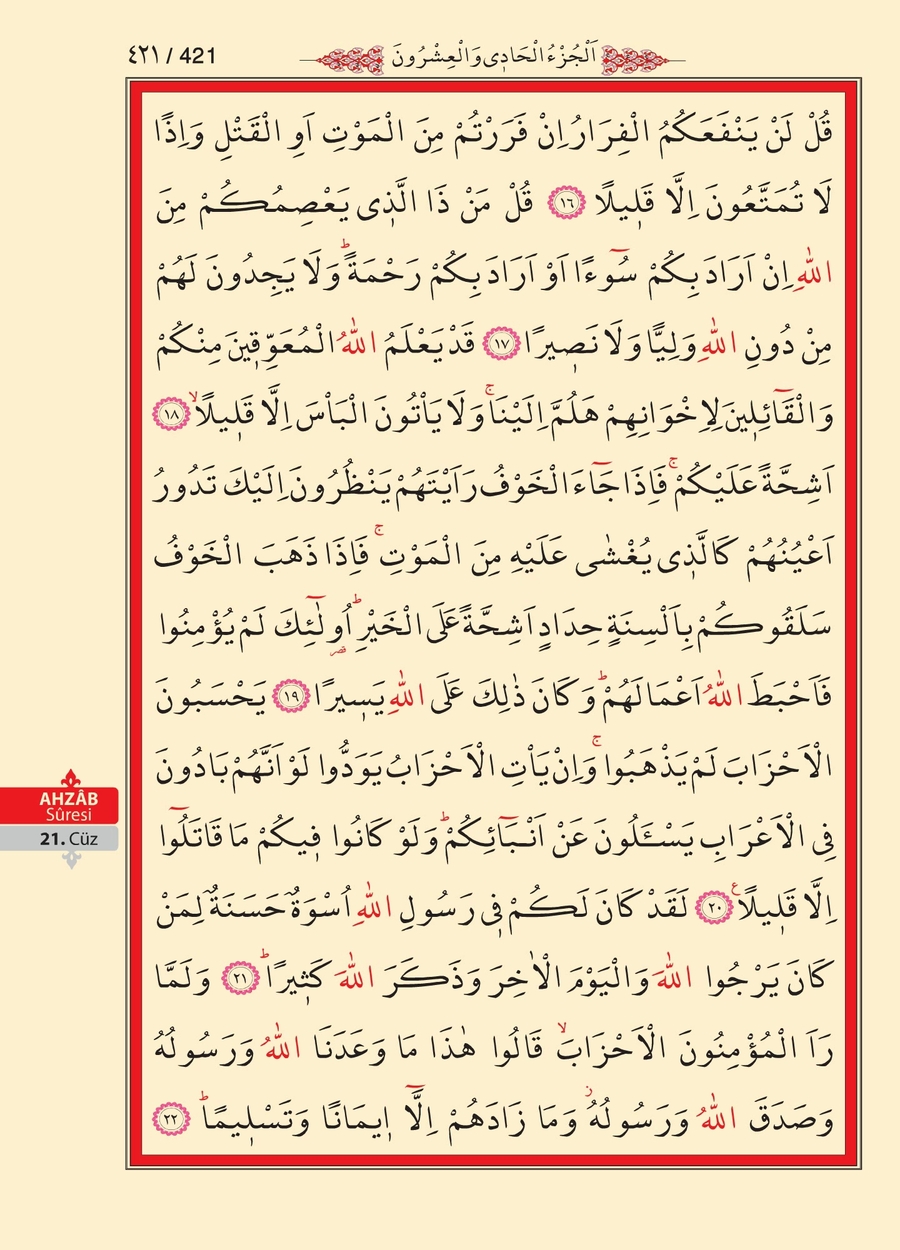 ٤٢١ / 421
اَلْجُزْءُ الْحَادِى وَالْعِشْرُونَ
قُلْ لَنْ يَنْفَعَكُمُ الْفِرَارُ اِنْ فَرَرْتُمْ مِنَ الْمَوْتِ اَوِ الْقَتْلِ وَاِذًا
لَا تُمَتَّعُونَ اِلَّا قَلٖيلًا ١٦ قُلْ مَنْ ذَا الَّذٖى يَعْصِمُكُمْ مِنَ
اللّٰهِ اِنْ اَرَادَ بِكُمْ سُٓوءًا اَوْ اَرَادَ بِكُمْ رَحْمَةًؕ وَلَا يَجِدُونَ لَهُمْ
مِنْ دُونِ اللّٰهِ وَلِيًّا وَلَا نَصٖيرًا ١٧ قَدْ يَعْلَمُ اللّٰهُ الْمُعَوِّقٖينَ مِنْكُمْ
وَالْقَٓائِلٖينَ لِاِخْوَانِهِمْ هَلُمَّ اِلَيْنَاۚ وَلَا يَاْتُونَ الْبَاْسَ اِلَّا قَلٖيلًاۙ ١٨
اَشِحَّةً عَلَيْكُمْۚ فَاِذَا جَٓاءَ الْخَوْفُ رَاَيْتَهُمْ يَنْظُرُونَ اِلَيْكَ تَدُورُ
اَعْيُنُهُمْ كَالَّذٖى يُغْشٰى عَلَيْهِ مِنَ الْمَوْتِۚ فَاِذَا ذَهَبَ الْخَوْفُ
سَلَقُوكُمْ بِاَلْسِنَةٍ حِدَادٍ اَشِحَّةً عَلَى الْخَيْرِؕ اُو۬لٰٓئِكَ لَمْ يُؤْمِنُوا
فَاَحْبَطَ اللّٰهُ اَعْمَالَهُمْؕ وَكَانَ ذٰلِكَ عَلَى اللّٰهِ يَسٖيرًا ١٩ يَحْسَبُونَ
الْاَحْزَابَ لَمْ يَذْهَبُواۚ وَاِنْ يَاْتِ الْاَحْزَابُ يَوَدُّوا لَوْ اَنَّهُمْ بَادُونَ
فِى الْاَعْرَابِ يَسْـَٔلُونَ عَنْ اَنْبَٓائِكُمْؕ وَلَوْ كَانُوا فٖيكُمْ مَا قَاتَلُٓوا
اِلَّا قَلٖيلًاࣖ ٢٠ لَقَدْ كَانَ لَكُمْ فٖى رَسُولِ اللّٰهِ اُسْوَةٌ حَسَنَةٌ لِمَنْ
كَانَ يَرْجُوا اللّٰهَ وَالْيَوْمَ الْاٰخِرَ وَذَكَرَ اللّٰهَ كَثٖيرًاؕ ٢١ وَلَمَّا
رَاَ الْمُؤْمِنُونَ الْاَحْزَابَۙ قَالُوا هٰذَا مَا وَعَدَنَا اللّٰهُ وَرَسُولُهُ
وَصَدَقَ اللّٰهُ وَرَسُولُهُؗ وَمَا زَادَهُمْ اِلَّٓا اٖيمَانًا وَتَسْلٖيمًاؕ ٢٢
AHZÂB
Sûresi
21. Cüz